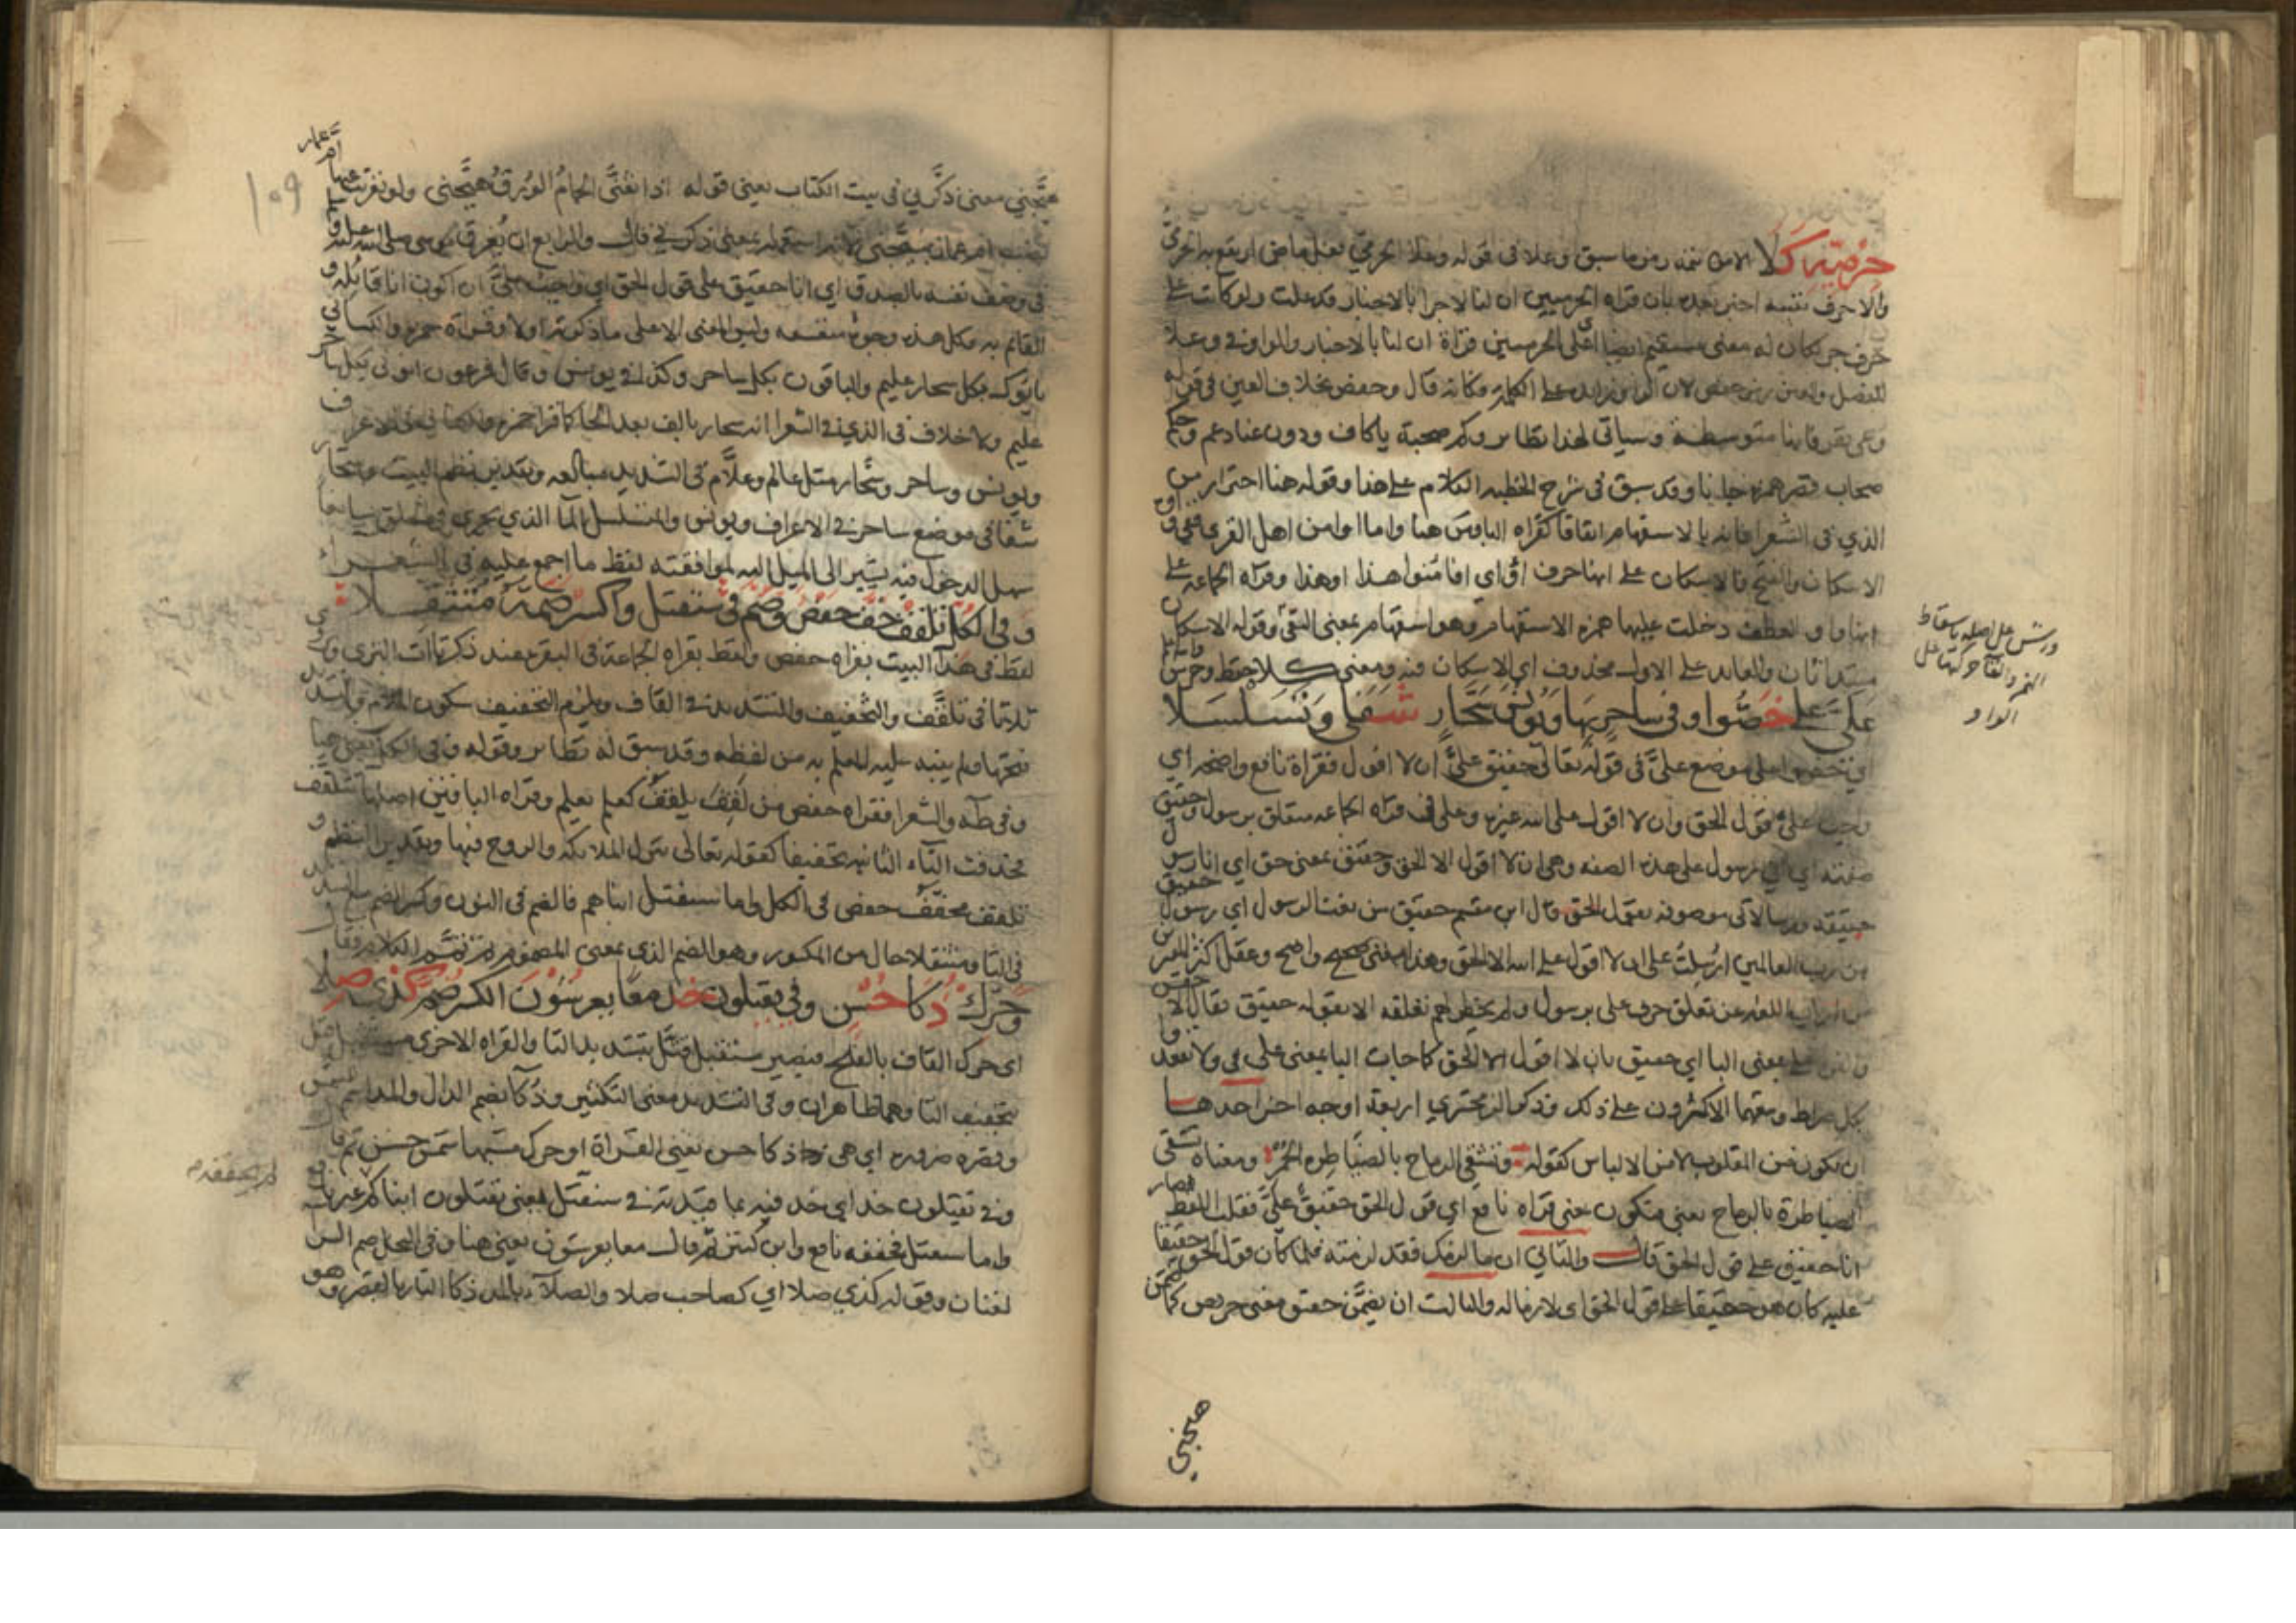 حرميه كلا الاولى تتمة رمز ما سبق وعلا في قوله وعلا الحرمي فعل ماض ارتفع به الحرمي
والاحرف تتبعه اخبر بعد بان قراه الحرميين ان لنا لاجرا بالاخبار قد علت ولو كانت على
حرف جر لكان له معنى مستقيم ايضا اي على الحرميين قراة ان لنا بالاخبار والواو في وعلا
للفصل ولم يرمز حفص لان الواو زايده على الكلمة فكانه قال وحفص بخلاف العين في قوله
وعى نفر فانها متوسطة وسياتي لهذا نظاير وكم صحبة ياكاف ودون عناد عم وحكم
صحاب قصر همزة جانا وقد سبق في شرح الخطبه الكلام على هذا وقوله هنا احتراز من
الذي في الشعرا فانه بالاستفهام اتفاقا كقراه الباقين هنا واما اوامن اهل القرى
الاسكان والفتح فالاسكان على انها حرف او اي افامنوا هذا او هذا وقراه الجماعه على
انها واو العطف دخلت عليها همزه الاستفهام وهو استفهام بمعنى النفي وقوله الاسكان
مبتدا ثان والعايد على الاول محذوف اي الاسكان فيه ومعنى كلا حفظ وحرس
ورش على اصله باسقاط
الهمز والقا حركتها على
الواو
علي على خصوا وفي ساحر بها ويونس سحار شفا وتسلسلا
اي خصوا على موضع علي في قوله تعالى حقيق علي ان لا اقول فقراة نافع واضحه اي
واجب علي قول الحق وان لا اقول على الله غيره وعلى في قراه الجماعه متعلق برسول
صفته اي اني رسول على هذه الصفه وهي ان لا اقول الا الحق وحقيق بمعنى حق اي انا رسول
حقيقه ورسالاتي موصوفه بقول الحق قال ابن مقسم حقيق من نعت الرسول اي رسول حقيق
من رب العالمين ارسلت على ان لا اقول على الله الا الحق وهذا معنى صحيح واضح وغفل اكثر المفسرين
من ارباب اللغه عن تعلق حرف على برسول ولم يخطر لهم تعلقه الا بقوله حقيق فقال الاخفش
والفرا على بمعنى البا اي حقيق بان لا اقول الا الحق كما جات البا بمعنى على في ولا تقعدوا
بكل صراط وتبعهما الاكثرون على ذلك وذكر الزمخشري اربعة اوجه اخر احدها
ان يكون من المقلوب لامن الالباس كقوله وتشقى الرماح بالضياطره الحمر ومعناه تشقى
الضياطرة بالرماح يعني فتكون بمعنى قراه نافع اي قول الحق حقيق علي فقلب اللفظ فصار
انا حقيق على قول الحق قال والثاني ان ما لزمك فقد لزمته فلما كان قول الحق حقيقا
عليه كان هو حقيقا على قول الحق اي لازما له والثالث ان يضمن حقيق معنى حريص كما ضمن
هيجني
١٠٩
هيجني معنى ذكرني في بيت الكتاب يعني قوله اذا تغنى الحمام الورق هيجني ولو تغربت عنها ام عمار
نصب ام عمار بهيجني لانه استعمله بمعنى ذكرني قال والرابع ان يغرق موسى صلى الله عليه وسلم
في وصف نفسه بالصدق اي انا حقيق على قول الحق اي واجب علي ان اكون انا قايله و
القايم به وكل هذه وجوه متعسفه وليس المعنى الا على ما ذكرته اولا وقراة حمزه والكسائي
ياتوك بكل سحار عليم والباقون بكل ساحر وكذا في يونس وقال فرعون ائتوني بكل ساحر
عليم ولا خلاف في الذي في الشعرا انه سحار بالف بعد الحا كما قرا حمزه والكسائي في الاعراف
ويونس وساحر وسحار مثل عالم وعلام في التشديد مبالغه وتقدير نظم البيت وسحار
شفا في موضع ساحر في الاعراف ويونس والمتسلسل الما الذي يجري في الحلق سايغا
سهل الدخول فيه يشير الى الميل اليه لموافقته لفظ ما اجمع عليه في الشعراء
وفي الكل تلقف خف حفص وضم في سنقتل واكسر ضمه متثقلا
لفظ في هذا البيت بقراه حفص ولفظ بقراه الجماعة في البقرة عند ذكر تاات البزي
ثلاثا في تلقف والتخفيف والتشديد في القاف ويلزم التخفيف سكون اللام والتشديد
فتحها ولم ينبه عليه للعلم به من لفظه وقد سبق له نظاير وقوله وفي الكل يعني هنا
وفي طه والشعرا فقراه حفص من لقف يلقف كعلم يعلم وقراه الباقين اصلها تتلقف
فحذفت التاء الثانيه تخفيفا كقوله تعالى تنزل الملايكه والروح فيها وتقدير النظم و
تلقف مخفف حفص في الكل واما سنقتل ابناهم فالضم في النون وكسر الضم مع التشديد
في التا ومتثقلا حال من المكسور وهو الضم الذي بمعنى المضموم ثم تمم الكلام فقال
وحرك ذكا حسن وفي يقتلون خذ معا يعرشون الكسر ضم كذي صلا
اي حرك القاف بالفتح فيصير سنقتل قتل بتشديد التا والقراه الاخرى مستقبل قتل
بتخفيف التا وهما ظاهران وفي التشديد معنى التكثير وذكا بضم الذال والمد اسم للشمس
وقصره ضرورة اي هي ذكا حسن يعني القراة او حرك مشبها شمس حسن ثم قال
وفي يقتلون خذ اي خذ فيه بما قيدته في سنقتل يعني يقتلون ابناكم غير نافع
لم يخففه
واما سنقتل فخففه نافع وابن كثير ثم قال معا يعرشون يعني هنا وفي النحل ضم الرا
لغتان وقوله كذي صلا اي كصاحب صلا والصلاء بالمد ذكا النار بالقصر وهو